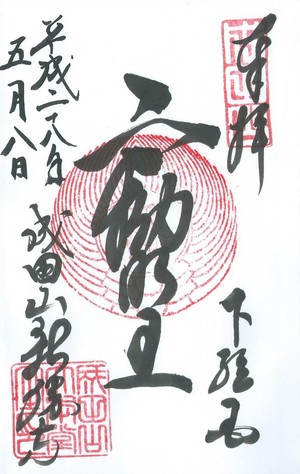 奉拝
下総国
不動明王
成田山新勝寺
平成二八年
五月八日